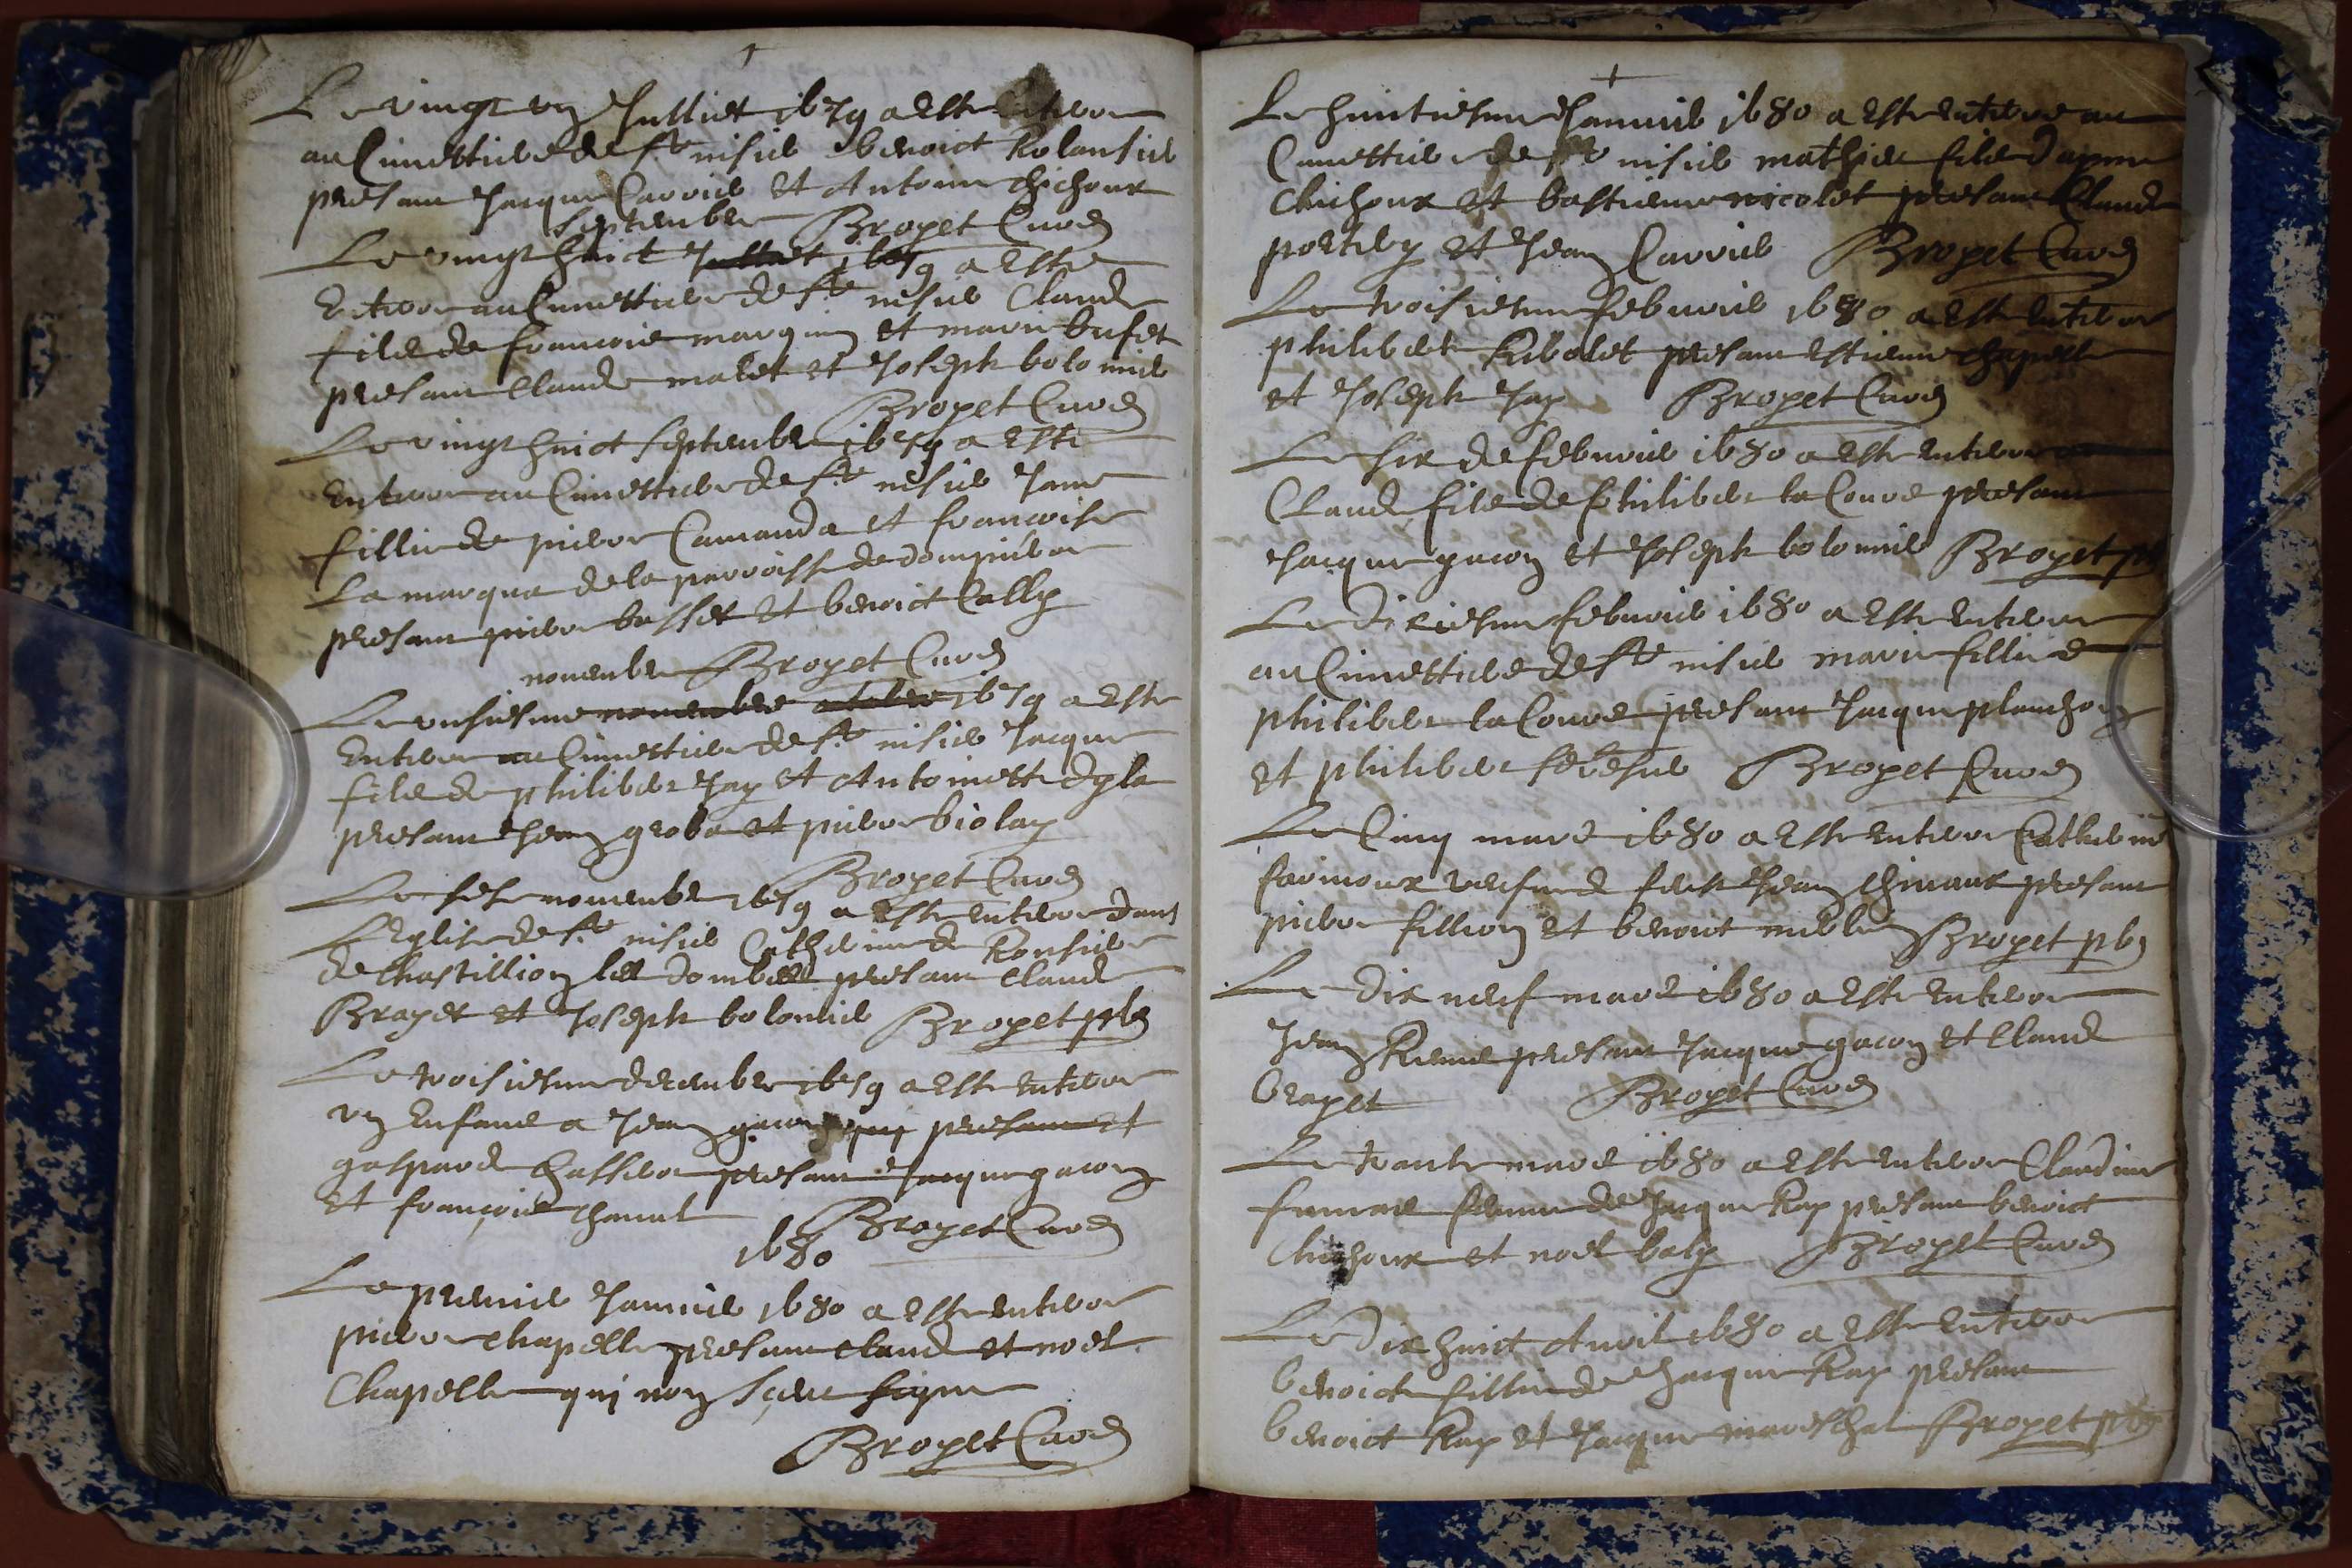 Le vingt un Julliet 1679 a esté enterre
au Cimettiere de St nisier benoict Rolansier
presant Jacque Carrier et Antoine chichoux
septembre Broyet Curé
Le vingt huict Julliet 1679 a esté
Enterre au Cimettiere de St nisier Claude
fils de francois marguin et marie bufet
presant Claude malet et Joseph bolomier
Broyet Curé
Le vingt huict septembre 1679 a esté
Enterre au Cimettiere de St nisier Janne
fillie de pierre Camanda et francoise
La marqua de la parroisse de dompierre
presant pierre basset et benoict Cally
novembre Broyet Curé
Le onsiesme novembre octobre 1679 a esté
Enterre au Cimettiere de St nisier Jacque
fils de philibert Jay et Antoinette
presant Jean groba et pierre biolay
Broyet Curé
Le sese novembre 1679 a esté enterre dans
L'Eglise de St nisier Catherine de Ronsiere
de Chastillion les dombes presant Claude
Brayet et Joseph bolomier Broyet pbr
Le troisiesme decembre 1679 a esté enterre
un Enfant a Jean gacon qui presant et
gaspard Chassera presant Jacque gacon
et françois chanal Broyet Curé
1680
Le premier Janvier 1680 a esté enterre
pierre chapelle presant Claude et noel
Chapelle qui non sceu signe
Broyet Curé
Le huitiesme Janvier 1680 a esté enterre au
Cimettiere de St nisier mathieu fils d'ayme
Chichoux et bastienne nicolet presant Claude
portely et Jean Carrier Broyet Curé
Le troisiesme febvrier 1680 a esté enterre
philibert Ribolet presant estienne chapelle
et Joseph Jay Broyet Curé
Le six de febvrier 1680 a esté enterre
Claude fils de philibert la Coure presant
Jacque gacon et Joseph bolomier Broyet pbr
Le dixiesme febvrier 1680 a esté enterre
au Cimettiere de St nisier marie fillie de
philibert la Coure presant Jacque planchon
et philibert Broyet Curé
Le Cinq mars 1680 a esté enterre Catherine
presant
pierre fillion et benoict Broyet pbr
Le dix neuf mars 1680 a esté enterre
Jean presant Jacque gacon et Claude
brayet Broyet Curé
Le trante mars 1680 a esté enterre Claudine
femme de Jacque Ray presant benoict
Chichoux et noel baly Broyet Curé
Le Dix huict Avril 1680 a esté enterre
benoicte fillie de Jacque Ray presant
benoict Ray et Jacque mareschal Broyet pbr